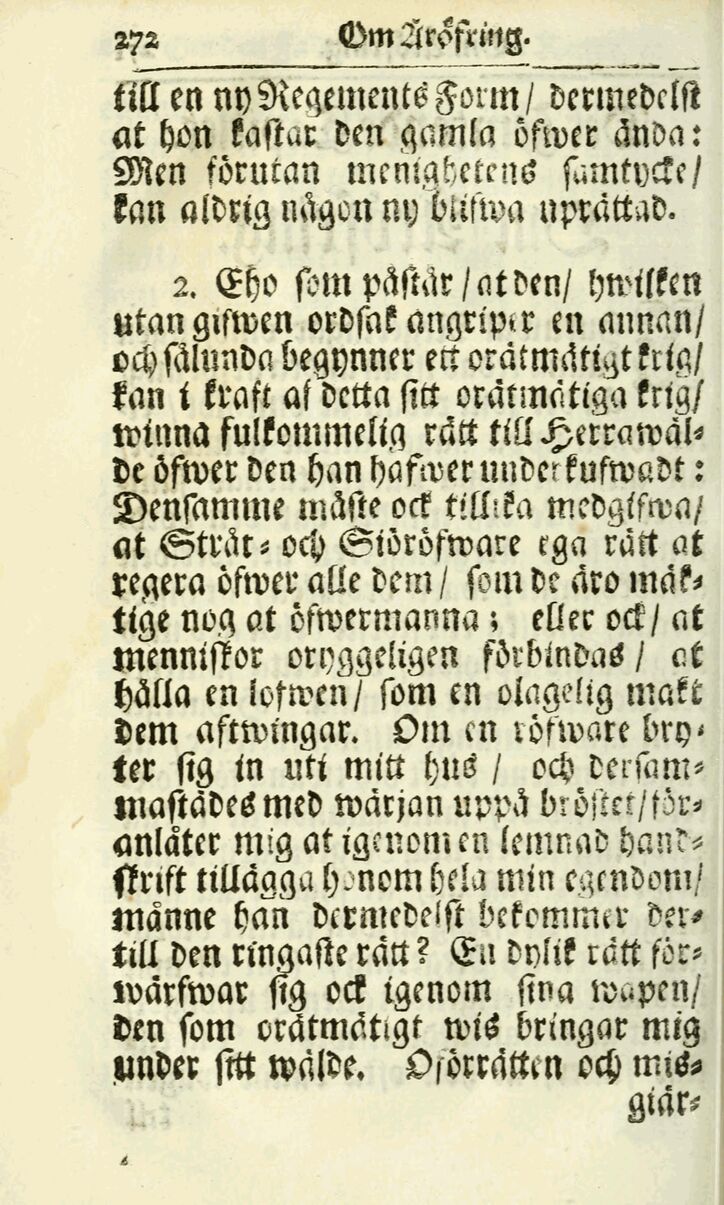 272 Om Äröfring.
till en ny Regements Form/ dermedelst
at hon kastar den gamla öfwer ända:
Men förutan menighetens samtycke/
kan aldrig någon ny blifwa uprättad.
2. Eho som påstår / at den/ hwilken
utan gifwen ordsak angriper en annan/
och sålunda begynner ett orätmätigt krig/
kan i kraft af detta sitt orätmätiga krig/
winna fulkommelig rätt till Herrawäl-
de öfwer den han hafwer underkufwadt:
Densamme måste ock tillika medgifwa/
at Stråt- och Siöröfware ega rätt at
regera öfwer alle dem / som de äro mäk-
tige nog at öfwermanna; eller ock / at
menniskor oryggeligen förbindas / at
hålla en lofwen/ som en olagelig makt
dem aftwingar. Om en röfware bry-
ter sig in uti mitt hus / och dersam-
mastädes med wärjan uppå bröstet/ för-
anlåter mig at igenom en lemnad hand-
skrift tillägga honom hela min egendom/
männe han dermedelst bekommer der-
till den ringaste rätt? En dylik rätt för-
wärfwar sig ock igenom sina wapen/
den som orätmätigt wis bringar mig
under sitt wälde. Oförrätten och mis-
giär-